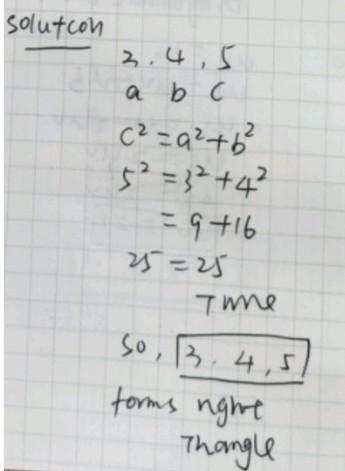 solution
3. 4, 5
a b c
c² = a² + b²
5² = 3² + 4²
= 9 + 16
25 = 25
True
so, 3. 4, 5
forms right
Triangle